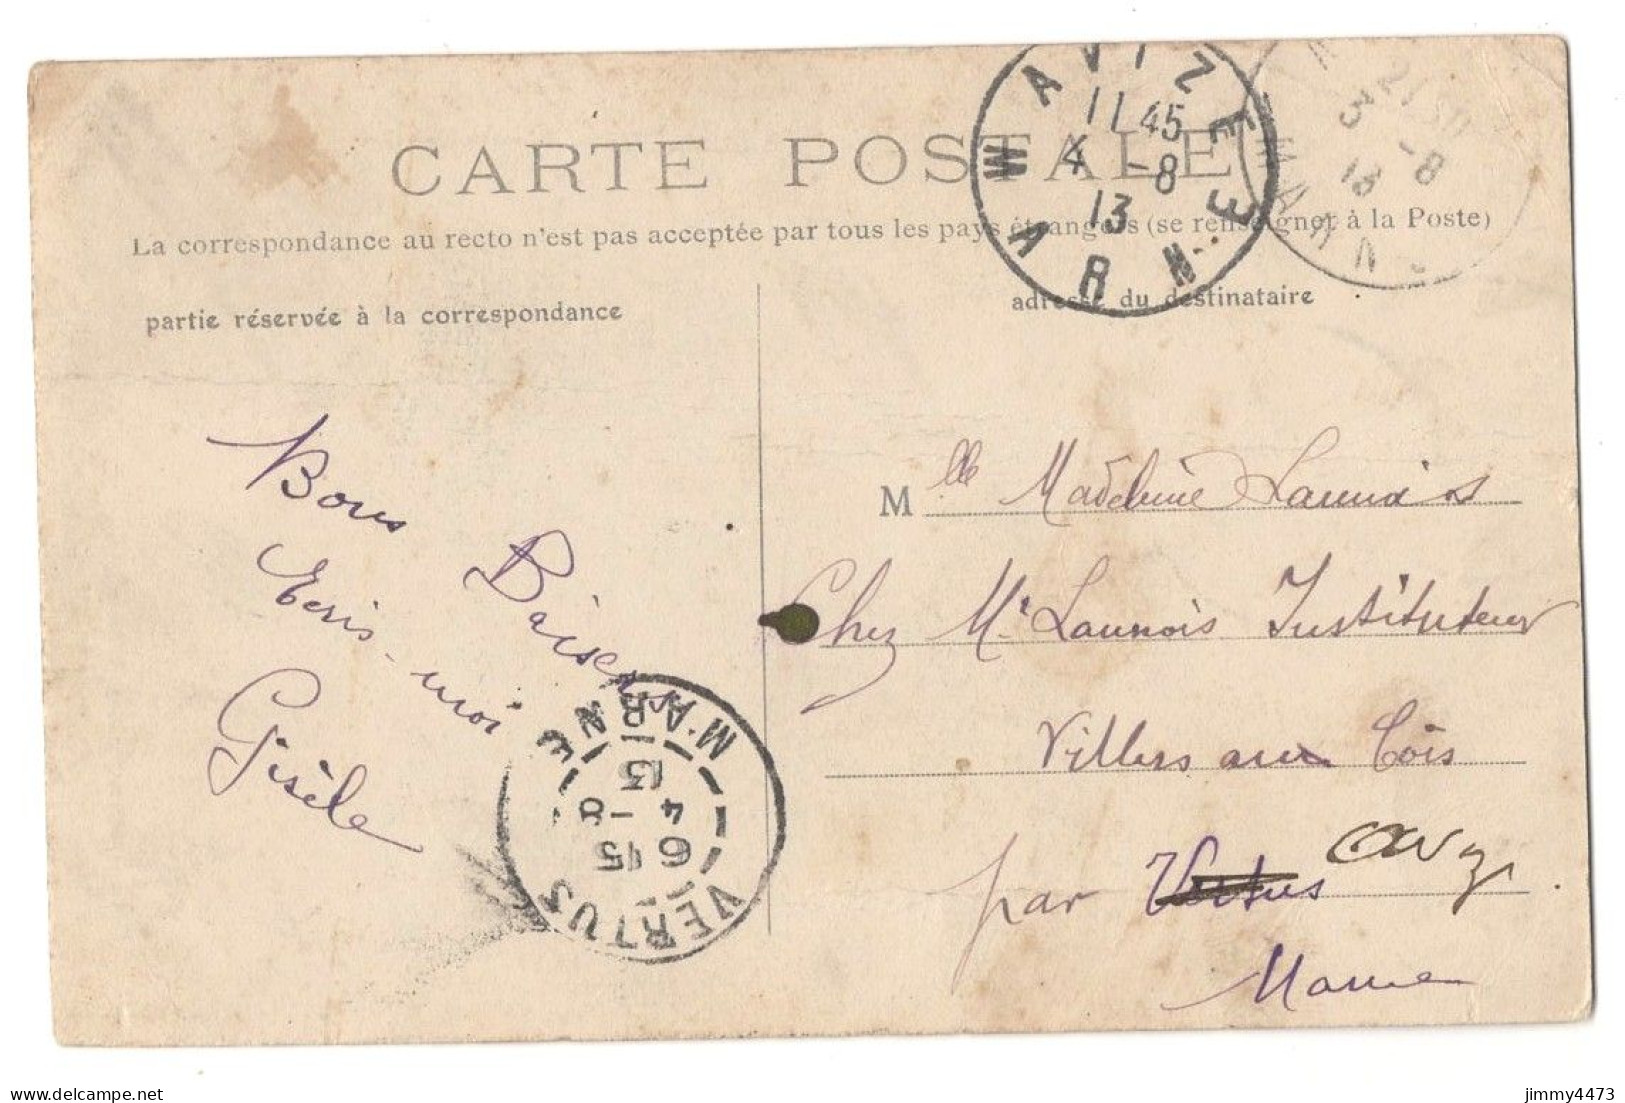 CARTE POSTALE
La correspondance au recto n'est pas acceptée par tous les pays étrangers (se renseigner à la Poste)
partie réservée à la correspondance
adresse du destinataire
AVIZE
11 45
4 -8
13
MARNE
21 30
3 -8
13
MARN
Bons Baisers
Ecris-moi
Gisèle
Mlle Madeleine Launois
Chez Mr Launois Instituteur
Villers aux Bois
par Vertus Avize
Marne
VERTUS
6 15
4 -8
13
MARNE
delcampe.net
jimmy4473